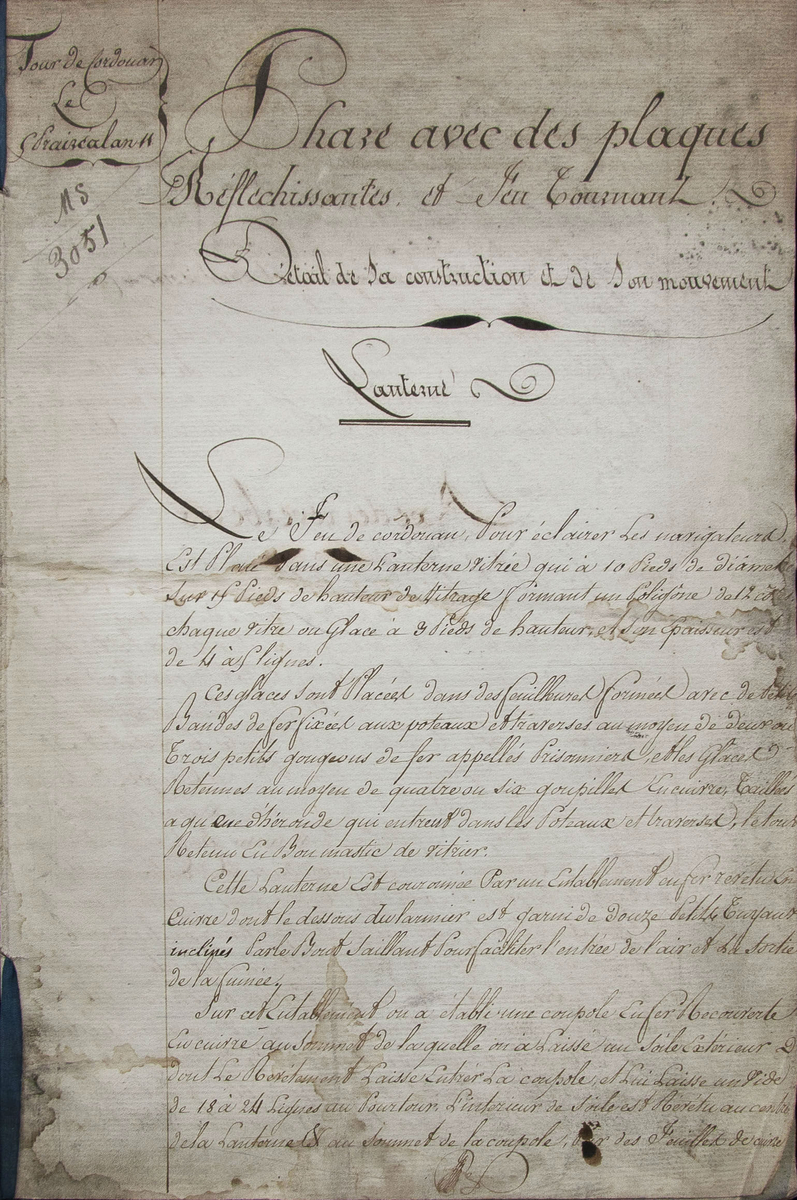 Tour de Cordouan
Le
5 Prairéal an 11
MS
3051
Phare avec des plaques
Réfléchissantes. et Feu Tournant.
Détail de Sa construction et de Son mouvement
Lanterne
Le Feu de cordouan, Pour éclairer Les navigateurs,
Est Placé dans une Lanterne vitrée qui à 10 Pieds de diamet
Sur 15 Pieds de hauteur de Vitrage formant un Poligône de 12
chaque vitre ou Glace à 3 Pieds de hauteur, et Son Epaisseur est
de 4 à 5 lignes.
Ces glaces Sont Placées dans des feuilleures formées avec de
Bandes de fer fixées aux poteaux et traverses au moyen de deux ou
Trois petits gougeons de fer appellés Prisonniers, et les Glaces
Retenues au moyen de quatre ou Six goupilles En cuivre, Taillées
a queue d'héronde qui entrent dans les Poteaux et traverses, le tout
Retenu En Bon mastic de vitrier.
Cette Lanterne Est couronnée Par un Entablement en fer revetu En
Cuivre dont le dessous du larmier est garni de Douze Petits Tuyaux
inclinés Par le Bout Saillant Pour faciliter l'entrée de l'air et La Sortie
de la fumée,
Sur cet Entablement on a établi une coupole En fer Recouverte
En cuivre au Sommet de la quelle on à Laissé un Soile Extérieur
dont Le Revétement Laisse Entrer La coupole, et Lui Laisse un Vide
de 18 à 24 Lignes au Pourtour, L'interieur de Soile est Revétu au centre
de la Lanterne & au Sommet de la coupole, Par des Feuilles de cuivre